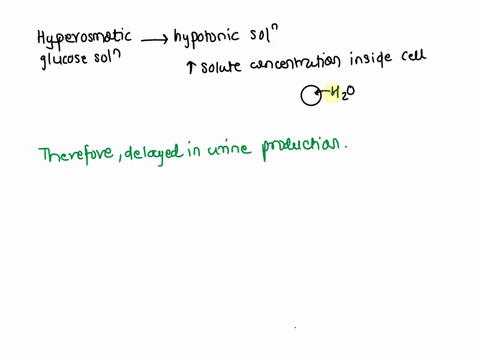 Hyperosmotic → hypotonic solⁿ
glucose solⁿ
↑ solute concentration inside cell
← H₂O
Therefore, delayed in urine production.